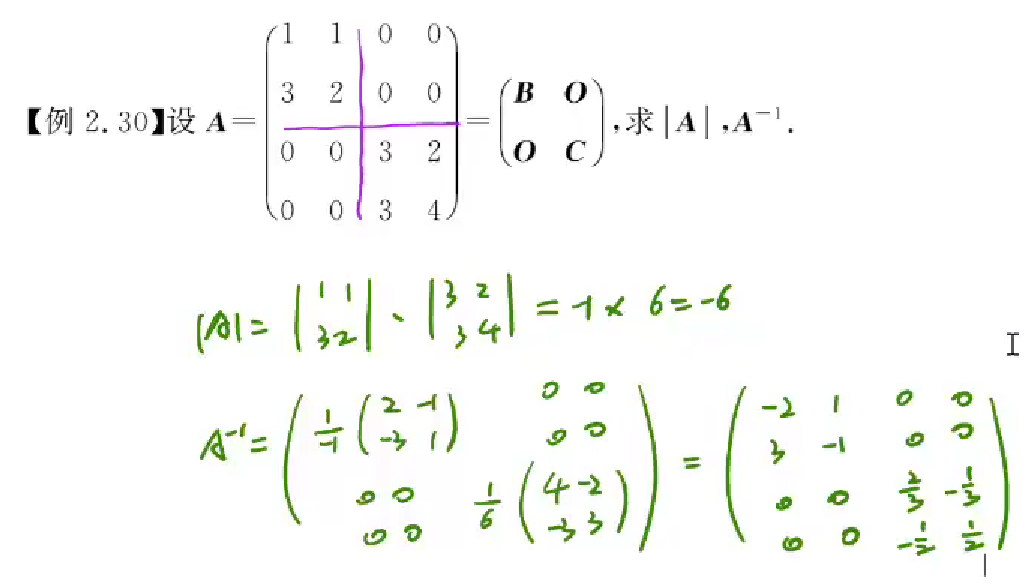 【例 2.30】设 A = \begin{pmatrix} 1 & 1 & 0 & 0 \\ 3 & 2 & 0 & 0 \\ 0 & 0 & 3 & 2 \\ 0 & 0 & 3 & 4 \end{pmatrix} = \begin{pmatrix} B & O \\ O & C \end{pmatrix}, 求 |A|, A^{-1}.
|A| = \begin{vmatrix} 1 & 1 \\ 3 & 2 \end{vmatrix} · \begin{vmatrix} 3 & 2 \\ 3 & 4 \end{vmatrix} = -1 × 6 = -6
A^{-1} = \begin{pmatrix} \frac{1}{-1} \begin{pmatrix} 2 & -1 \\ -3 & 1 \end{pmatrix} & \begin{matrix} 0 & 0 \\ 0 & 0 \end{matrix} \\ \begin{matrix} 0 & 0 \\ 0 & 0 \end{matrix} & \frac{1}{6} \begin{pmatrix} 4 & -2 \\ -3 & 3 \end{pmatrix} \end{pmatrix} = \begin{pmatrix} -2 & 1 & 0 & 0 \\ 3 & -1 & 0 & 0 \\ 0 & 0 & \frac{2}{3} & -\frac{1}{3} \\ 0 & 0 & -\frac{1}{2} & \frac{1}{2} \end{pmatrix}